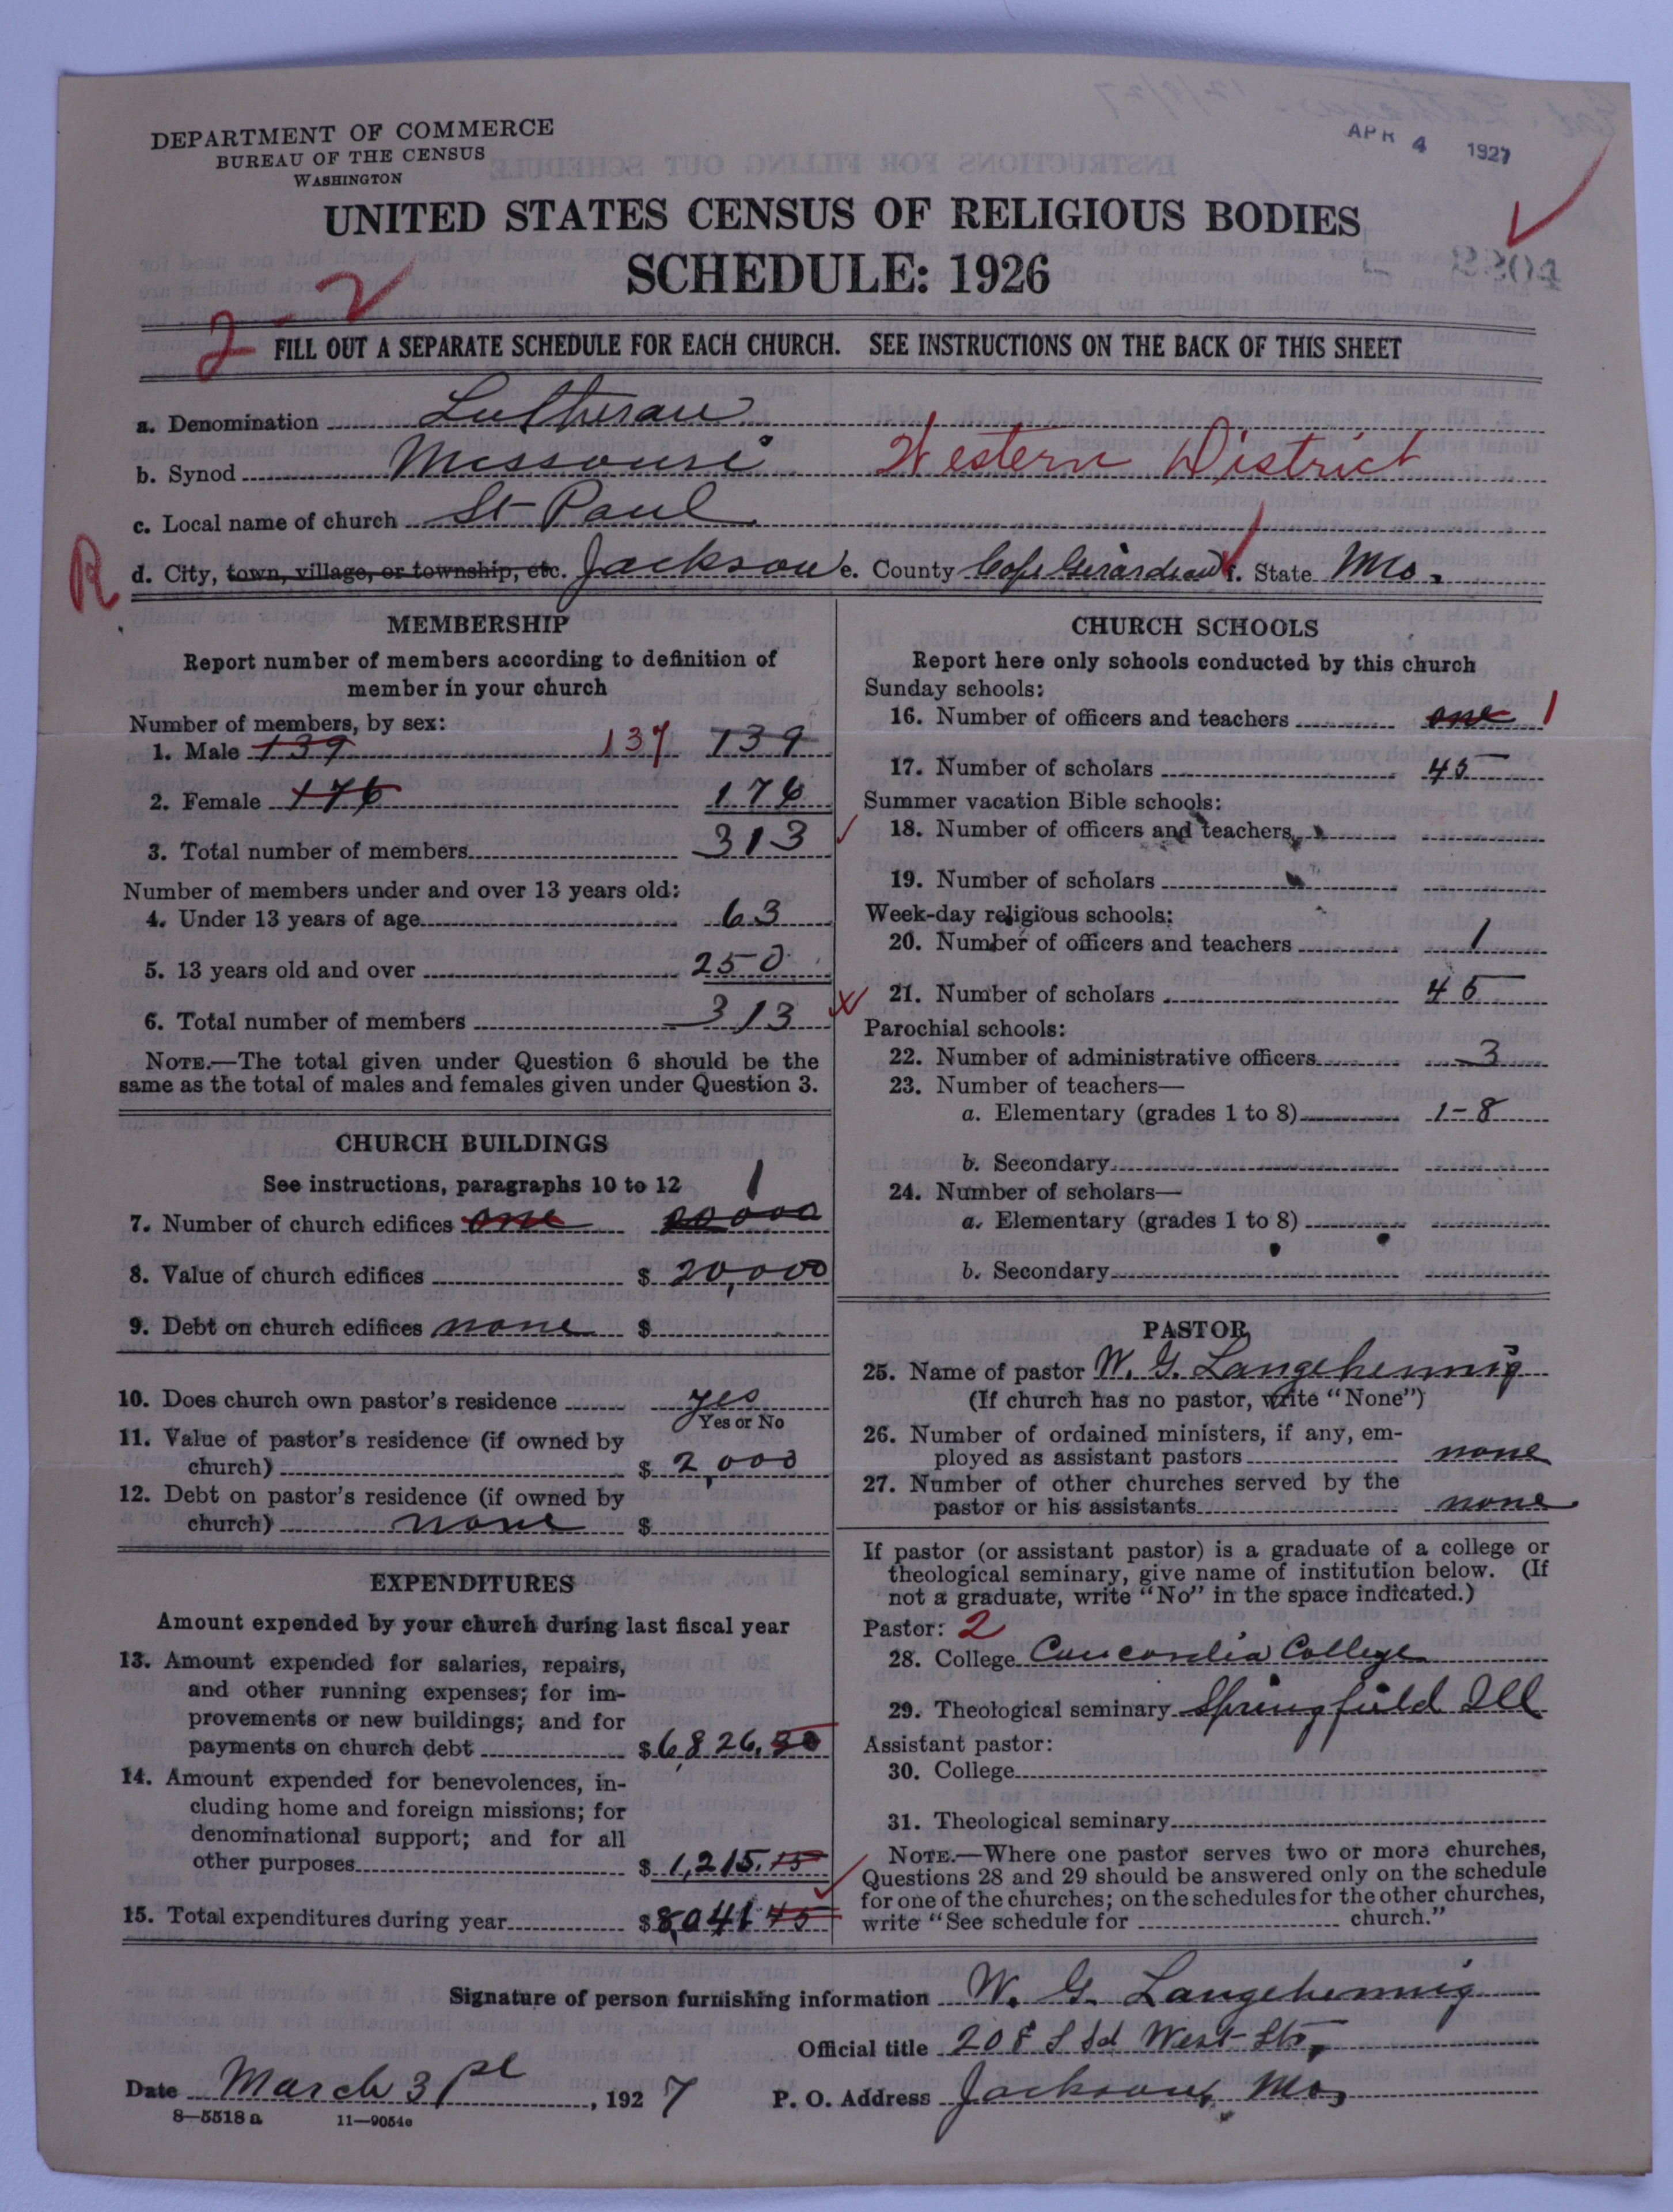 APR 4 1927
DEPARTMENT OF COMMERCE
BUREAU OF THE CENSUS
WASHINGTON
UNITED STATES CENSUS OF RELIGIOUS BODIES
SCHEDULE: 1926
2-2
FILL OUT A SEPARATE SCHEDULE FOR EACH CHURCH. SEE INSTRUCTIONS ON THE BACK OF THIS SHEET
a. Denomination Lutheran
b. Synod Missouri Western District
c. Local name of church St Paul
R d. City, town, village, or township, etc. Jackson e. County Cape Girardeau f. State Mo.
MEMBERSHIP
Report number of members according to definition of
member in your church
Number of members, by sex:
1. Male 139 137 139
2. Female 176 176
3. Total number of members 313
Number of members under and over 13 years old:
4. Under 13 years of age 63
5. 13 years old and over 250
6. Total number of members 313
NOTE.—The total given under Question 6 should be the
same as the total of males and females given under Question 3.
CHURCH BUILDINGS
See instructions, paragraphs 10 to 12 1
7. Number of church edifices one 20000
8. Value of church edifices $ 20,000
9. Debt on church edifices none $
10. Does church own pastor's residence yes
Yes or No
11. Value of pastor's residence (if owned by
church) $ 2,000
12. Debt on pastor's residence (if owned by
church) none $
EXPENDITURES
Amount expended by your church during last fiscal year
13. Amount expended for salaries, repairs,
and other running expenses; for im-
provements or new buildings; and for
payments on church debt $ 6,826.30
14. Amount expended for benevolences, in-
cluding home and foreign missions; for
denominational support; and for all
other purposes $ 1,215.15
15. Total expenditures during year $ 8,041 45
CHURCH SCHOOLS
Report here only schools conducted by this church
Sunday schools:
16. Number of officers and teachers one 1
17. Number of scholars 45
Summer vacation Bible schools:
18. Number of officers and teachers
19. Number of scholars
Week-day religious schools:
20. Number of officers and teachers 1
21. Number of scholars 45
Parochial schools:
22. Number of administrative officers 3
23. Number of teachers—
a. Elementary (grades 1 to 8) 1-8
b. Secondary
24. Number of scholars—
a. Elementary (grades 1 to 8)
b. Secondary
PASTOR
25. Name of pastor W. G. Langehennig
(If church has no pastor, write "None")
26. Number of ordained ministers, if any, em-
ployed as assistant pastors none
27. Number of other churches served by the
pastor or his assistants none
If pastor (or assistant pastor) is a graduate of a college or
theological seminary, give name of institution below. (If
not a graduate, write "No" in the space indicated.)
Pastor: 2
28. College Concordia College
29. Theological seminary Springfield Ill
Assistant pastor:
30. College
31. Theological seminary
NOTE.—Where one pastor serves two or more churches,
Questions 28 and 29 should be answered only on the schedule
for one of the churches; on the schedules for the other churches,
write "See schedule for church."
Signature of person furnishing information W. G. Langehennig
Official title 208 West
Date March 31, 1927 P. O. Address Jackson, Mo,
8—5518a 11—9054c